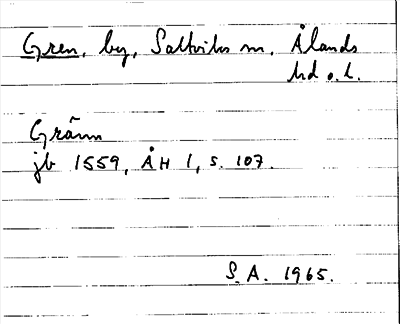 Gren, by, Saltviks sn, Ålands
hd o. l.
Gränn
jb 1559, ÅH 1, s. 107.
S.A. 1965.